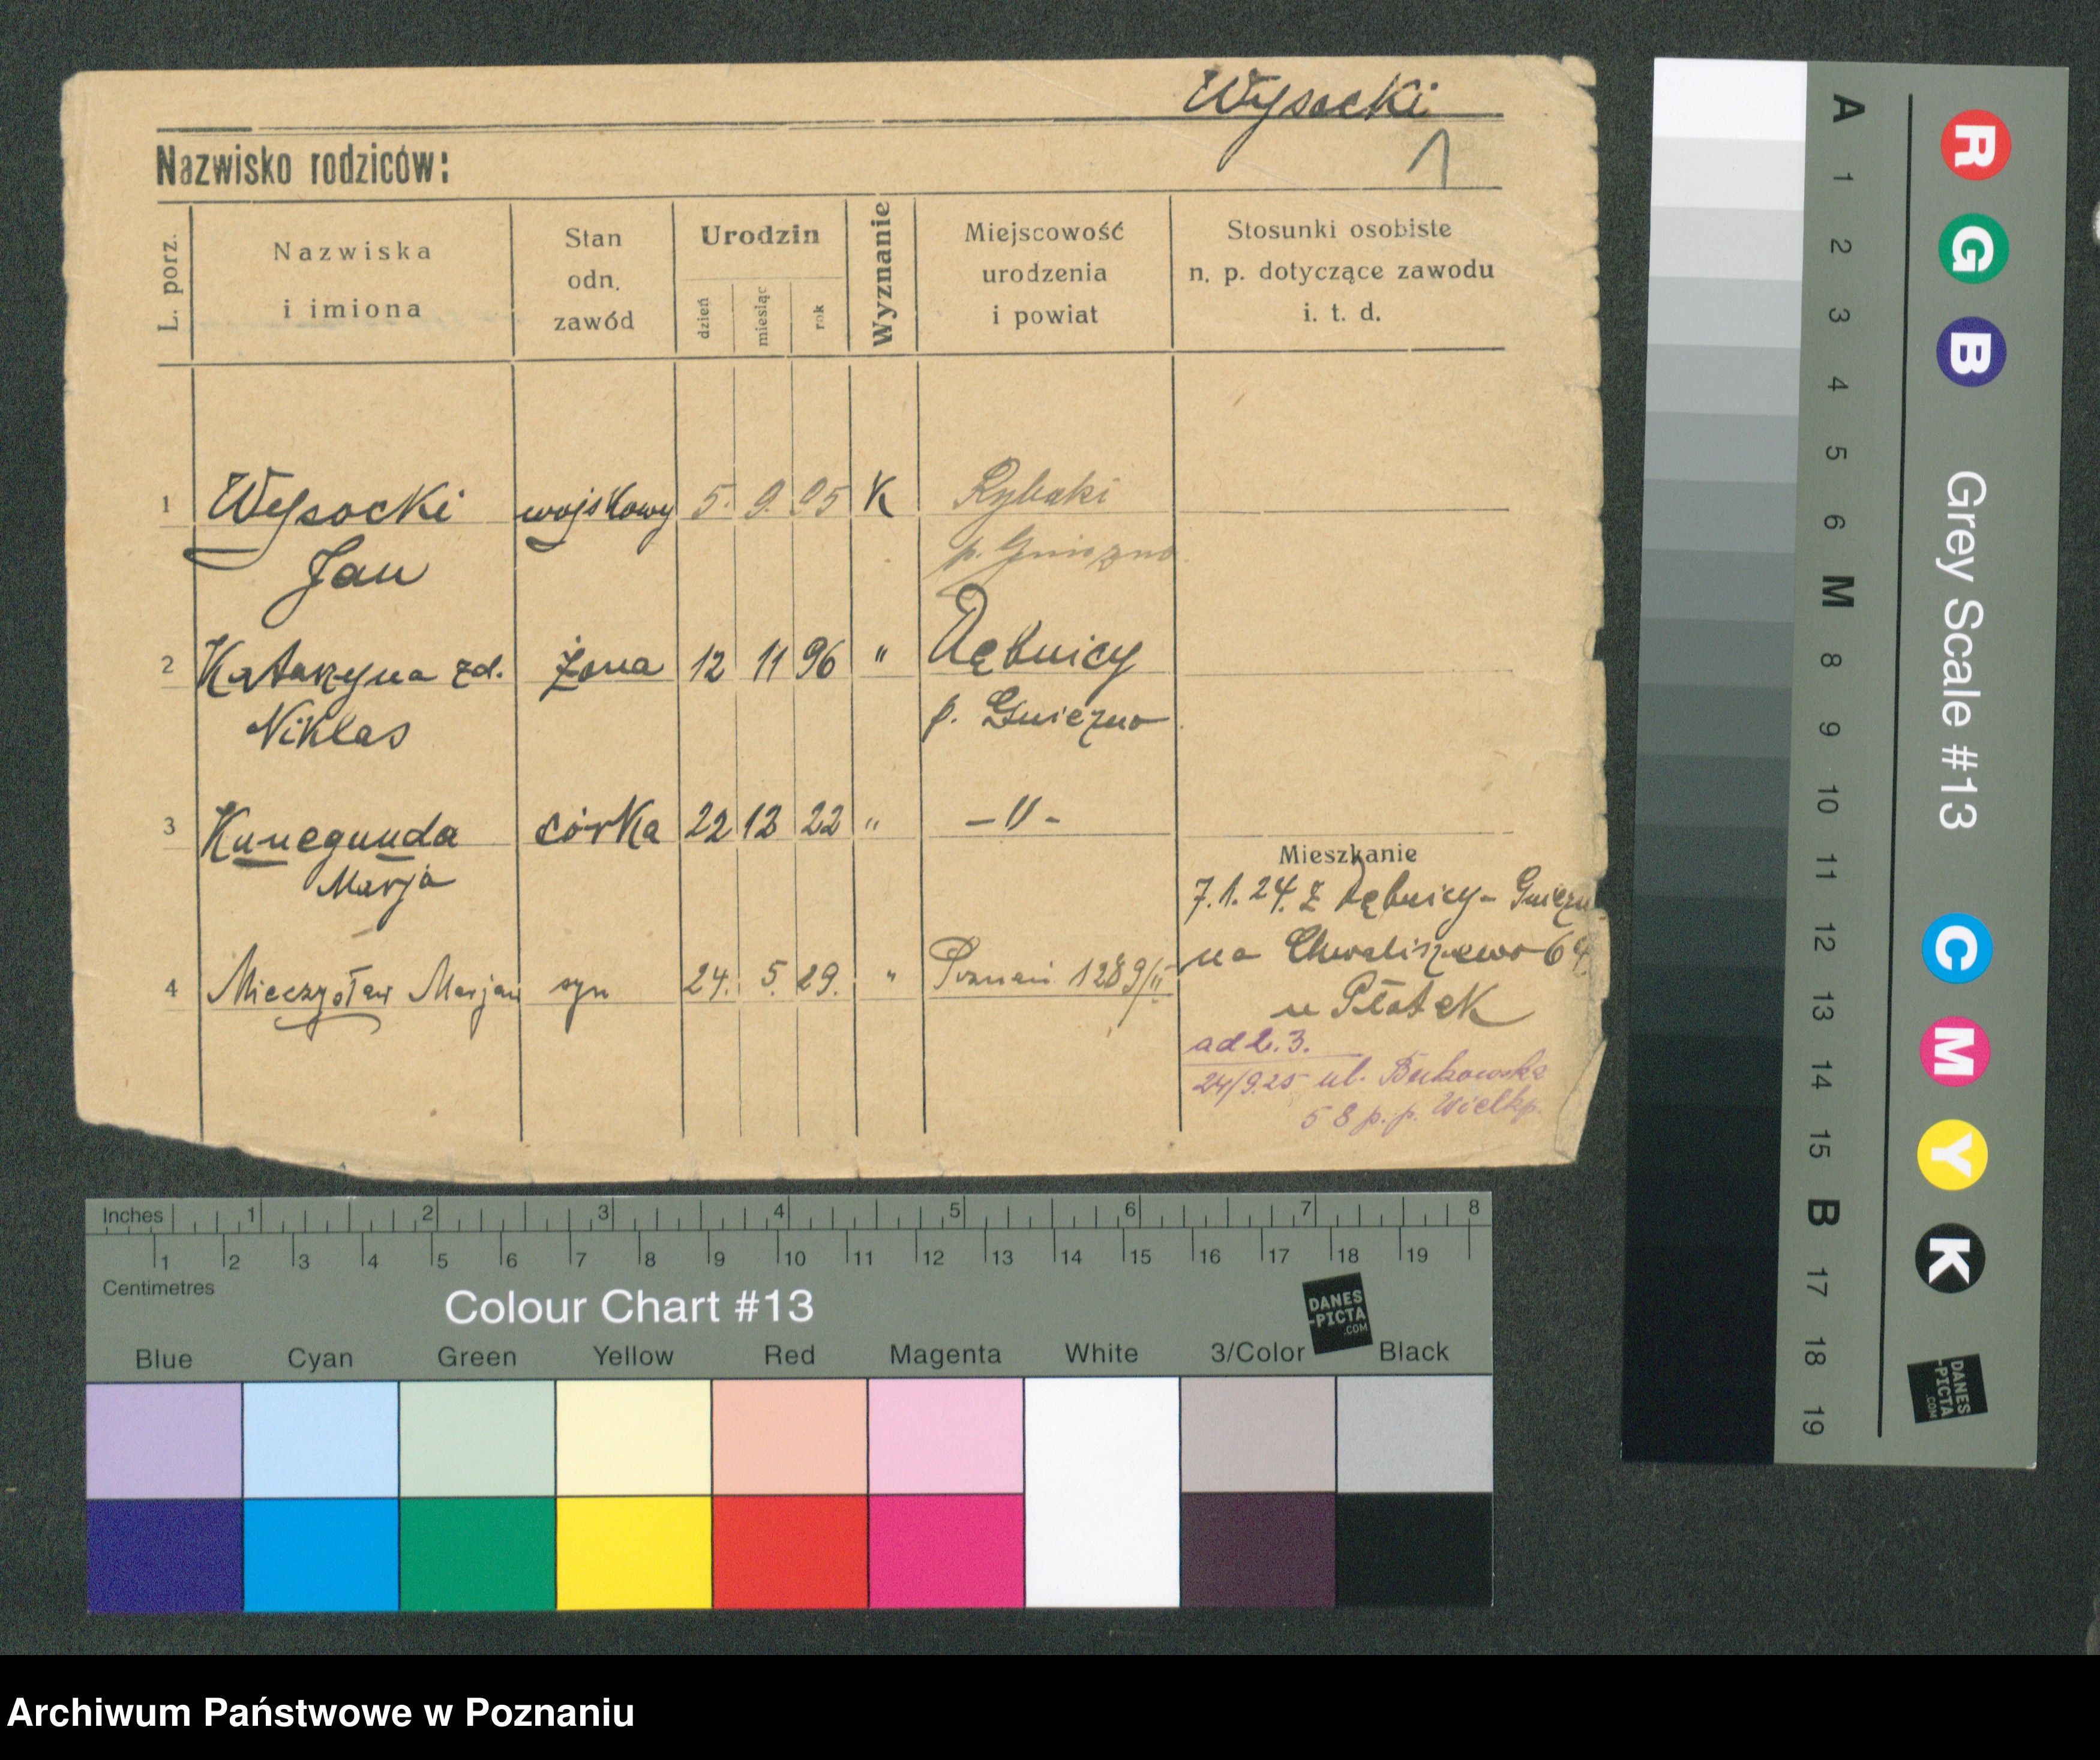 Wysocki
Nazwisko rodziców:
1
L. porz.
Nazwiska
i imiona
Stan
odn.
zawód
Urodzin
dzień
miesiąc
rok
Wyznanie
Miejscowość
urodzenia
i powiat
Stosunki osobiste
n. p. dotyczące zawodu
i. t. d.
1 Wysocki wojskowy 5. 9. 95 K Rybaki
Jan p. Gniezno
2 Katarzyna zd. żona 12 11 96 " Dębnicy
Niklas p. Gniezno
3 Kunegunda córka 22 12 22 " -"-
Marja
Mieszkanie
7.1.24. z Dębnicy - Gniezn
na Chwaliszewo 64
4 Mieczysław Marjan syn 24. 5. 29. " Poznań 1289/II
u Płotek
ad L. 3.
24/9.25 ul. Bukowska
58 p.p. Wielkp.
Inches 1 2 3 4 5 6 7 8
1 2 3 4 5 6 7 8 9 10 11 12 13 14 15 16 17 18 19
Centimetres
Colour Chart #13
DANES
-PICTA
.COM
Blue Cyan Green Yellow Red Magenta White 3/Color Black
A 1 2 3 4 5 6 M 8 9 10 11 12 13 14 15 B 17 18 19
R G B Grey Scale #13 C M Y K
DANES
-PICTA
.COM
Archiwum Państwowe w Poznaniu